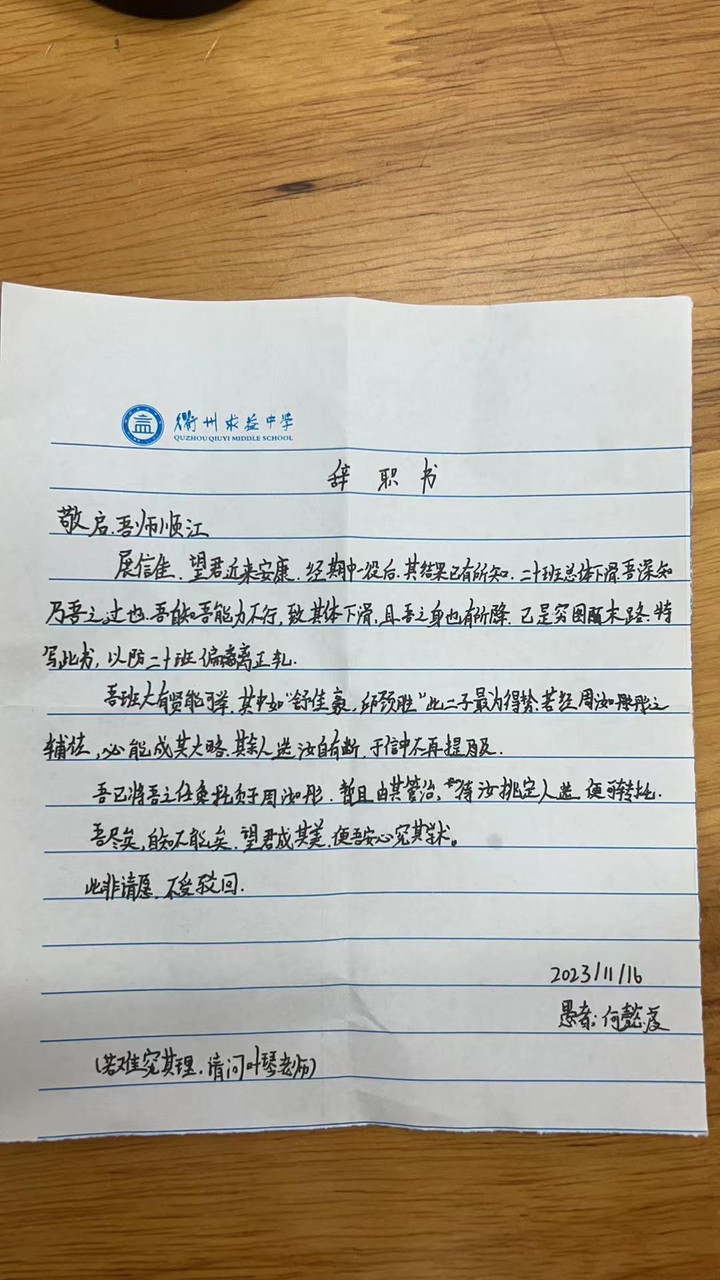 衢州求益中学
QUZHOU QIUYI MIDDLE SCHOOL
辞职书
敬启.吾师顺江
展信佳.望君近来安康.经期中一役后.其结果已有所知.二十班总体下滑.吾深知
乃吾之过也.吾自知吾能力不行,致其体下滑,且吾之身也有所降.已是穷困末路.特
写此书,以防二十班偏离正轧.
吾班大有贤能可举.其中如“舒佳豪,邱颈胜”此二子最为得势.若经周汝彤之
辅佐,必能成其大略.其余人选汝自有断.于信中不再提及.
吾已将吾之任免托负于周汝彤.暂且由其管治,待汝挑定人选便可转托.
吾尽矣,自知不能矣.望君成其美.便吾安心究其学术。
此非请愿.不受驳回.
2023/11/16
愚者:何懿
(若难究其理.请问叶琴老师)